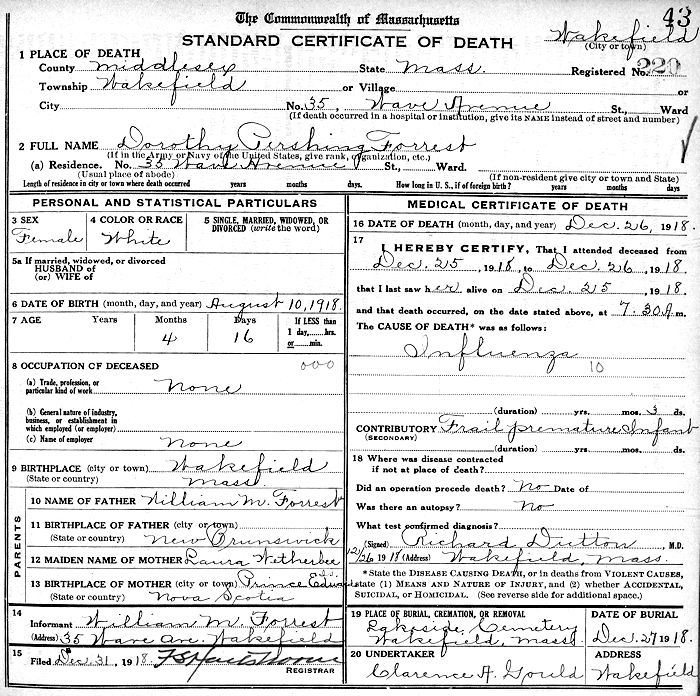 43
The Commonwealth of Massachusetts
STANDARD CERTIFICATE OF DEATH
Wakefield
(City or town)
1 PLACE OF DEATH
County Middlesex State Mass. Registered No. 220
Township Wakefield or Village
City No. 35, Wave Avenue St., Ward
(If death occurred in a hospital or institution, give its NAME instead of street and number)
2 FULL NAME Dorothy Pershing Forrest
(If in the Army or Navy of the United States, give rank, organization, etc.)
(a) Residence. No. 35 Wave Avenue St., Ward.
(Usual place of abode) (If non-resident give city or town and State)
Length of residence in city or town where death occurred years months days. How long in U. S., if of foreign birth? years months days.
PERSONAL AND STATISTICAL PARTICULARS
3 SEX
Female
4 COLOR OR RACE
White
5 SINGLE, MARRIED, WIDOWED, OR
DIVORCED (write the word)
5a If married, widowed, or divorced
HUSBAND of
(or) WIFE of
6 DATE OF BIRTH (month, day, and year) August 10, 1918.
7 AGE Years Months Days If LESS than
4 16 1 day,....hrs.
or....min.
8 OCCUPATION OF DECEASED 000
(a) Trade, profession, or
particular kind of work None
(b) General nature of industry,
business, or establishment in
which employed (or employer)
(c) Name of employer None
9 BIRTHPLACE (city or town) Wakefield
(State or country) Mass.
PARENTS
10 NAME OF FATHER William M. Forrest
11 BIRTHPLACE OF FATHER (city or town)
(State or country) New Brunswick
12 MAIDEN NAME OF MOTHER Laura Wetherbee
13 BIRTHPLACE OF MOTHER (city or town) Prince Edward Is.
(State or country) Nova Scotia
14
Informant William M. Forrest
(Address) 35 Wave Ave. Wakefield
15
Filed Dec. 31, 1918.
REGISTRAR
MEDICAL CERTIFICATE OF DEATH
16 DATE OF DEATH (month, day, and year) Dec. 26, 1918.
17
I HEREBY CERTIFY, That I attended deceased from
Dec. 25, 1918, to Dec. 26, 1918.
that I last saw her alive on Dec. 25, 1918.
and that death occurred, on the date stated above, at 7.30 A.m.
The CAUSE OF DEATH* was as follows:
Influenza
10
(duration) yrs. mos. 3 ds.
CONTRIBUTORY Frail premature Infant
(SECONDARY)
(duration) yrs. mos. ds.
18 Where was disease contracted
if not at place of death?
Did an operation precede death? No Date of
Was there an autopsy? No
What test confirmed diagnosis?
(Signed) Richard Dutton, M.D.
12/26 1918 (Address) Wakefield, Mass.
*State the DISEASE CAUSING DEATH, or in deaths from VIOLENT CAUSES,
state (1) MEANS AND NATURE OF INJURY, and (2) whether ACCIDENTAL,
SUICIDAL, or HOMICIDAL. (See reverse side for additional space.)
19 PLACE OF BURIAL, CREMATION, OR REMOVAL
Lakeside Cemetery
Wakefield, Mass.
DATE OF BURIAL
Dec. 27 1918.
20 UNDERTAKER
Clarence A. Gould
ADDRESS
Wakefield